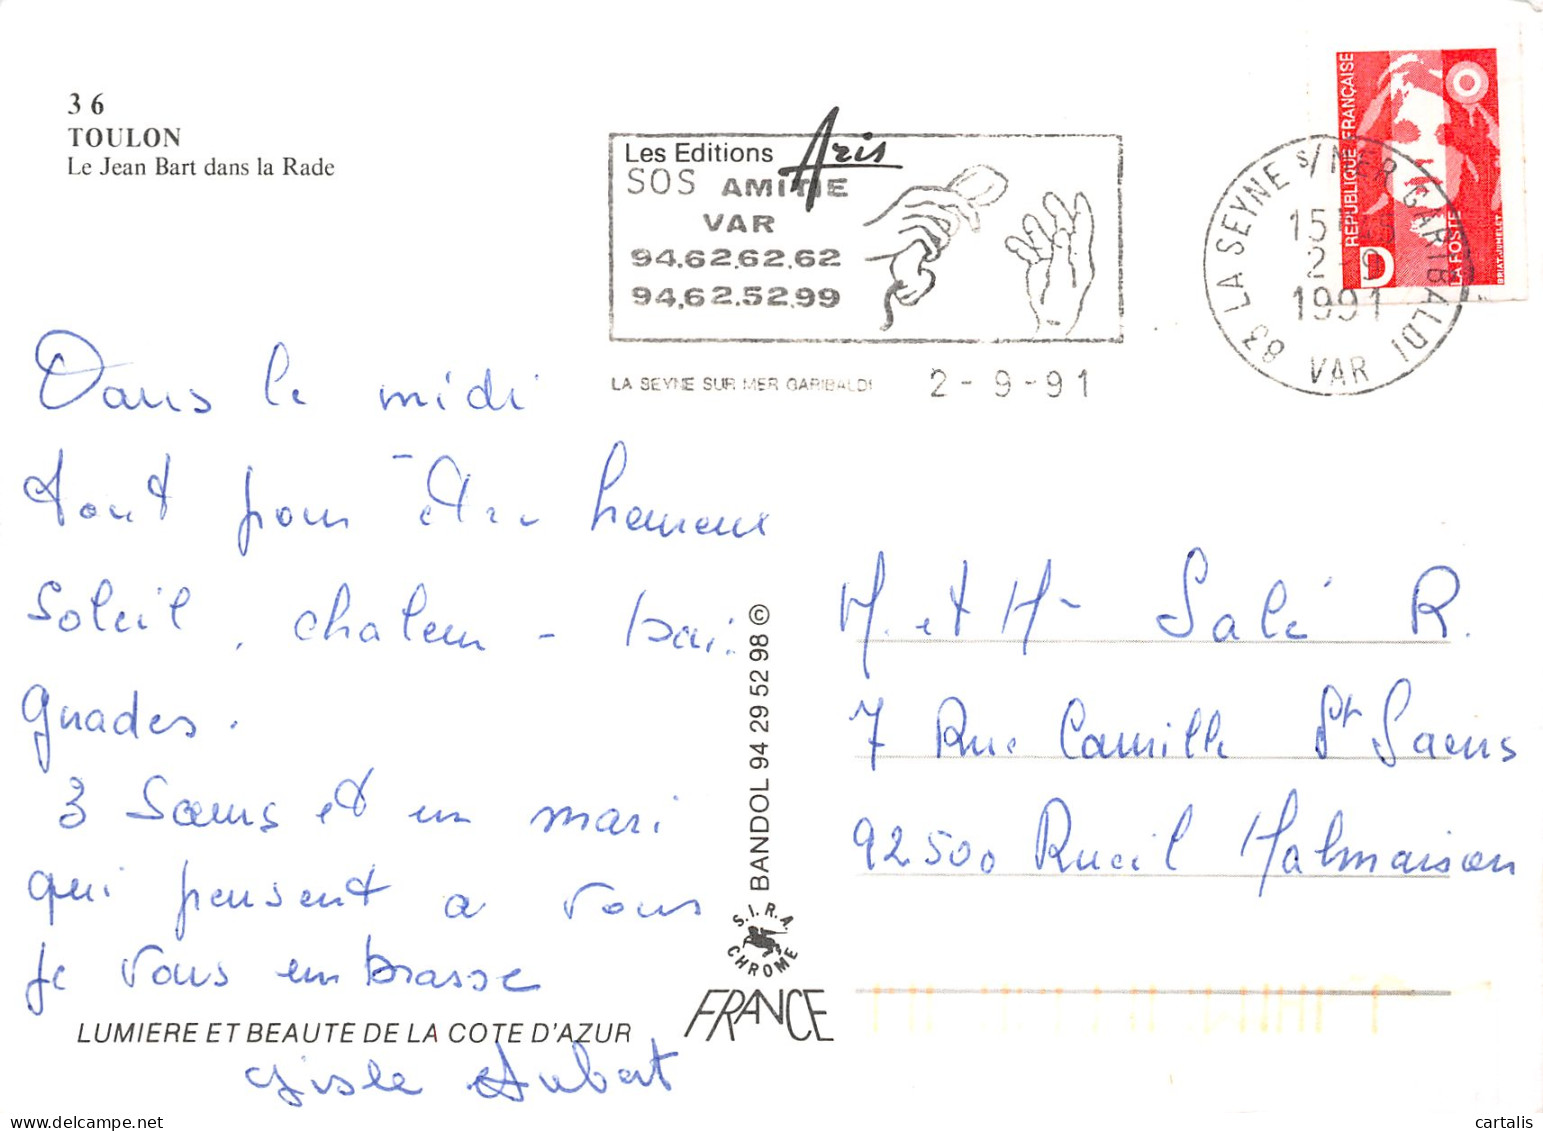 36
TOULON
Le Jean Bart dans la Rade
Les Editions Aris
SOS AMITIE
VAR
94.62.62.62
94.62.52.99
LA SEYNE SUR MER GARIBALDI 2-9-91
83 LA SEYNE S/MER GARIBALDI
15
2-9
1991
VAR
REPUBLIQUE FRANÇAISE
LA FOSTE
D
BRIAT-JUMELET
Dans le midi
tout pour être heureux
Soleil, chaleur - bai-
gnades.
3 Sœurs et un mari
qui pensent a vous
Je vous embrasse
Gisèle Aubert
M. et Me Salé R.
7 Rue Camille St Saens
92500 Rueil Malmaison
BANDOL 94 29 52 98 ©
S.I.R.A.
CHROME
FRANCE
LUMIERE ET BEAUTE DE LA COTE D'AZUR
cartalis